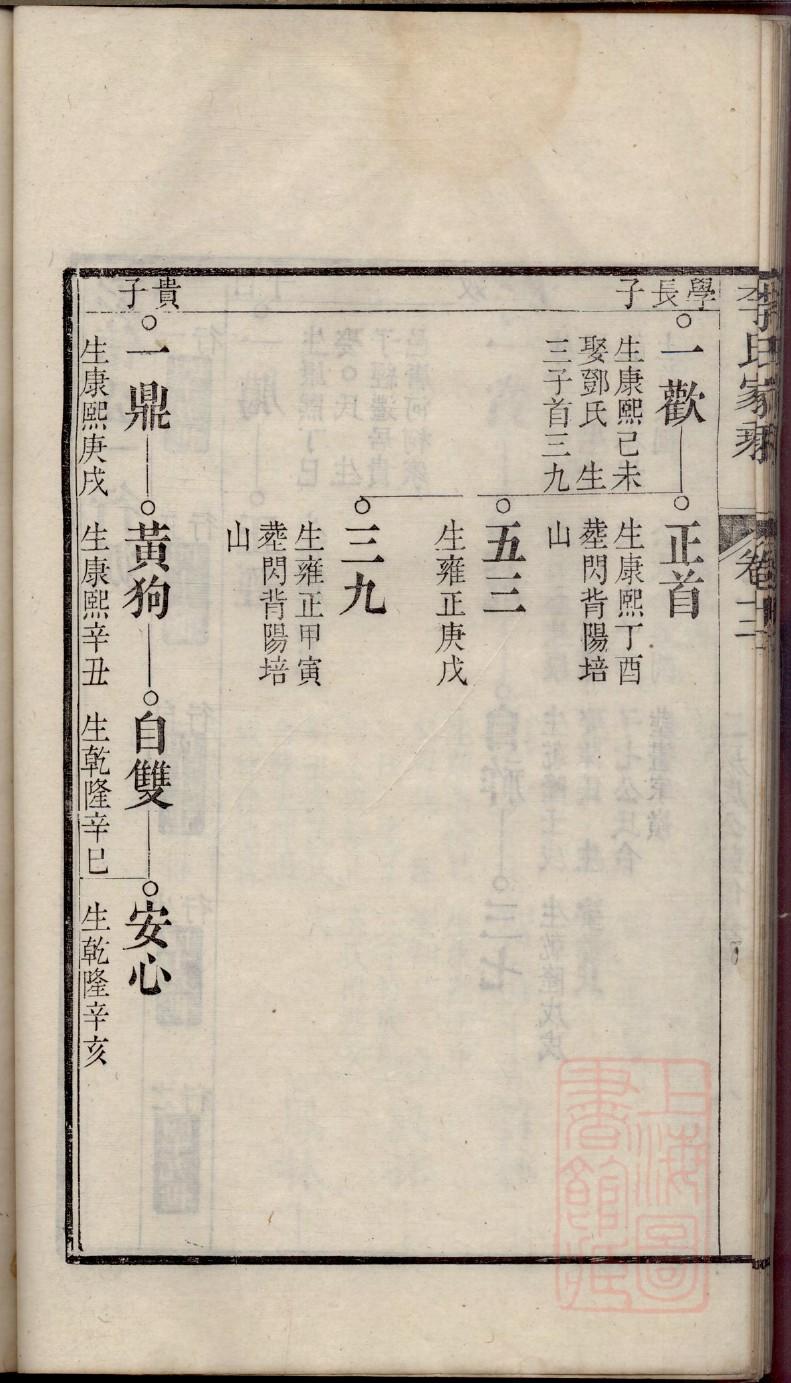 李氏家乘
卷十三
學長子
一歡
生康熙己未
娶鄧氏 生
三子首三九
正首
生康熙丁酉
塟閃背陽培
山
五三
生雍正庚戌
三九
生雍正甲寅
塟閃背陽培
山
貴子
一鼎
生康熙庚戌
黃狗
生康熙辛丑
自雙
生乾隆辛巳
安心
生乾隆辛亥
上海圖
書館藏